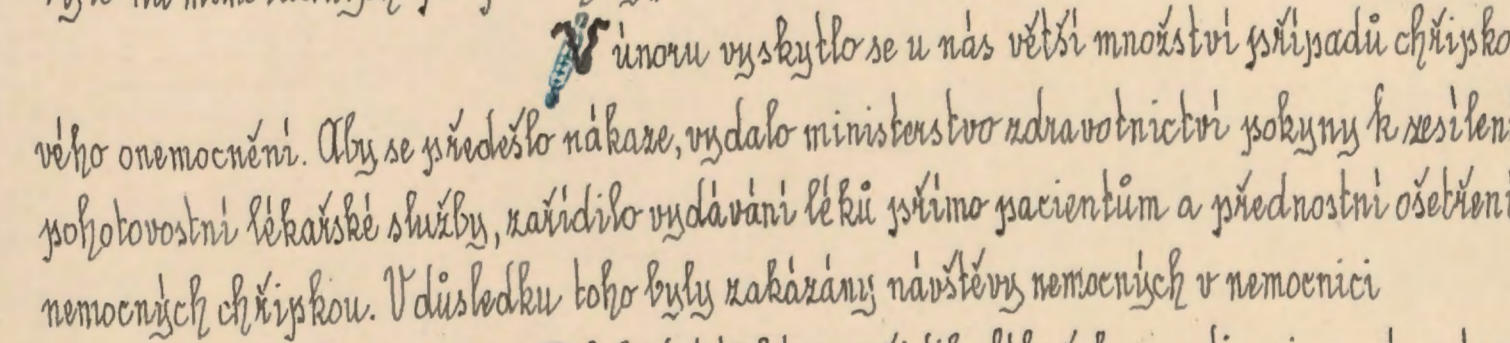 V únoru vyskytlo se u nás větší množství případů chřipko
vého onemocnění. Aby se předešlo nákaze, vydalo ministerstvo zdravotnictví pokyny k zesílení
pohotovostní lékařské služby, zařídilo vydávání léků přímo pacientům a přednostní ošetření
nemocných chřipkou. V důsledku toho byly zakázány návštěvy nemocných v nemocnici